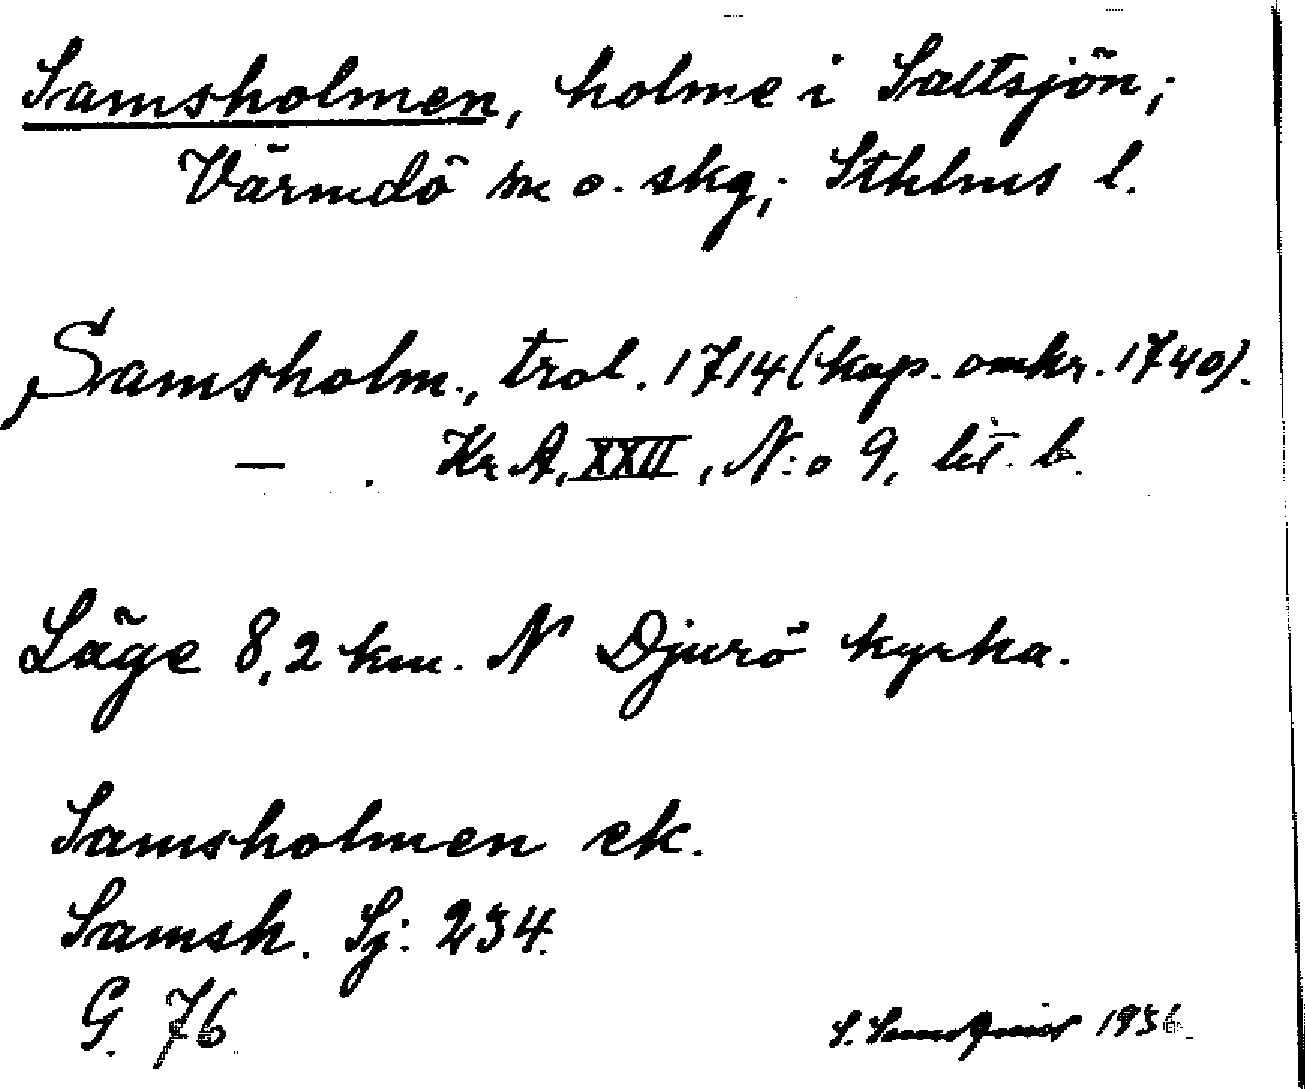 Samsholmen, holme i Saltsjön;
Värmdö sn o. skg; Sthlms l.
Samsholm., trol. 1714 (kop. omkr. 1740).
— . Kr A, XXII, N:o 9, lit. b.
Läge 8,2 km. N Djurö kyrka.
Samsholmen ek.
Samsh. Sj: 234.
G. 76
S. 1936